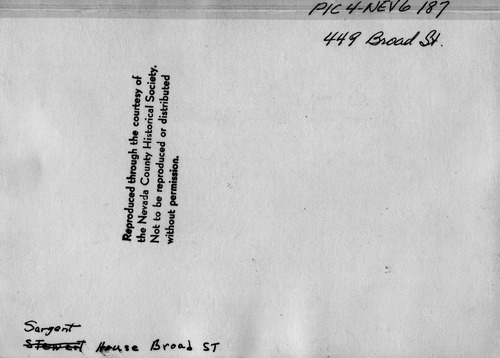 PIC 4-NEV6 187
449 Broad St.
Reproduced through the courtesy of
the Nevada County Historical Society.
Not to be reproduced or distributed
without permission.
Sargent
Stewart House Broad ST